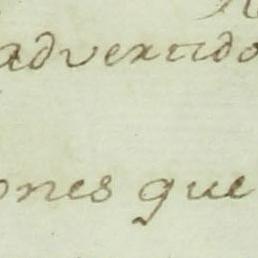 advertido
ones que